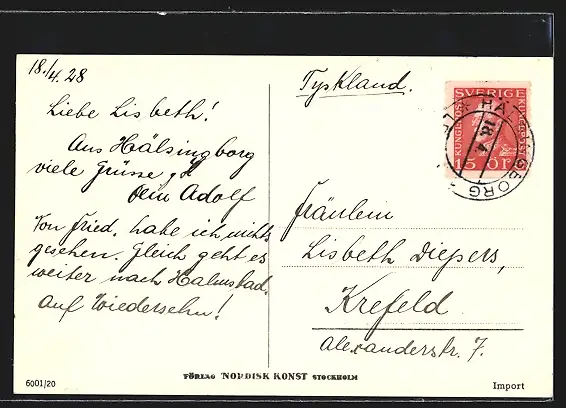 18./4.28
Liebe Lisbeth!
Aus Hälsingborg
viele Grüsse
Dein Adolf
Von Fried. habe ich nichts
gesehen. Gleich geht es
weiter nach Halmstad.
Auf Wiedersehn!
6001/20
Tyskland.
SVERIGE
15 ÖRE
HÄLSINGBORG
18 4
Fräulein
Lisbeth Diepers,
Krefeld
Alexanderstr. 7.
FÖRLAG NORDISK KONST STOCKHOLM
Import